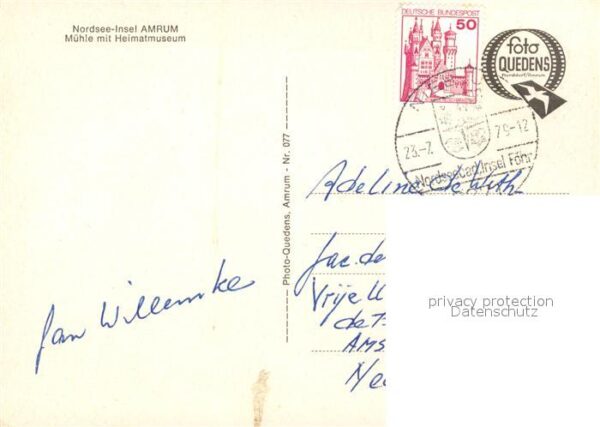 Nordsee-Insel AMRUM
Mühle mit Heimatmuseum
DEUTSCHE BUNDESPOST
50
foto
QUEDENS
Norddorf/Amrum
23.-7.
79-12
Nordseebad Insel Föhr
Photo-Quedens, Amrum - Nr. 077
Adeline de With
Fac. de
Vrije U
de
Ams
Ne
Jan Willemke
privacy protection
Datenschutz